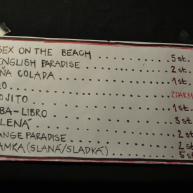 SEX ON THE BEACH ..... 5 st.
ENGLISH PARADISE ... 2 st.
ÑA COLADA ... 1 st.
O
OJITO
BA-LIBRO ... 1 st.
LENÁ ... 3 st
ANGE PARADISE ... 2 st
AMKA (SLANÁ/SLADKÁ)